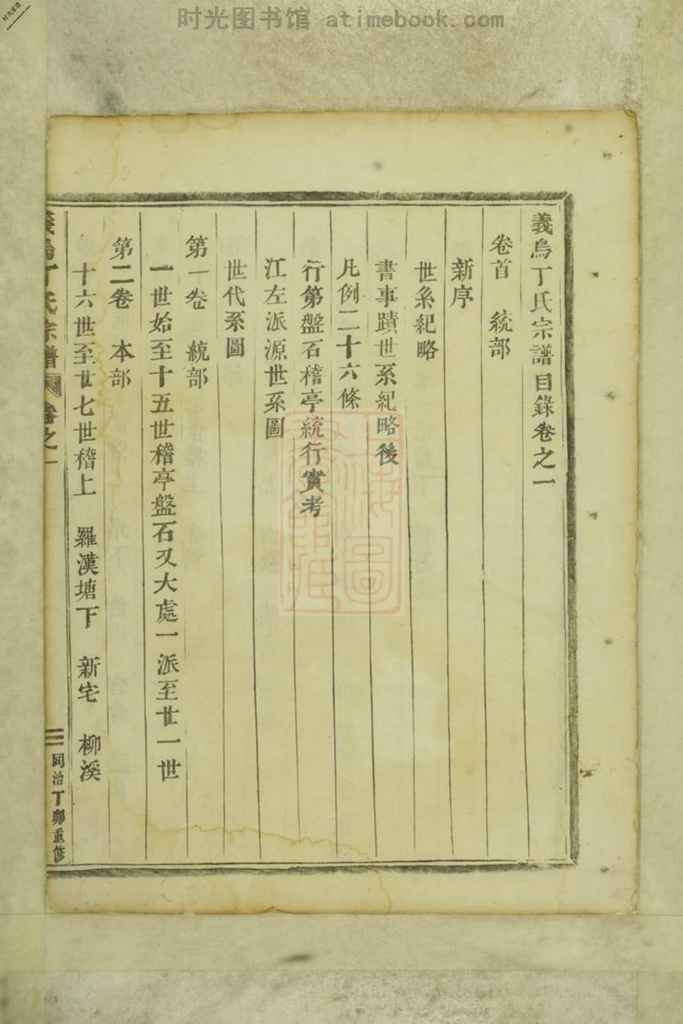 时光图书馆 atimebook.com
義烏丁氏宗譜目錄卷之一
卷首 統部
新序
世系紀略
書事蹟世系紀略後
凡例二十六條
行第盤石稽亭統行實考
江左派源世系圖
世代系圖
第一卷 統部
一世始至十五世稽亭盤石又大處一派至廿一世
第二卷 本部
十六世至廿七世稽上 羅漢塘下 新宅 柳溪
義烏丁氏宗譜 卷之一
同治丁卯重修